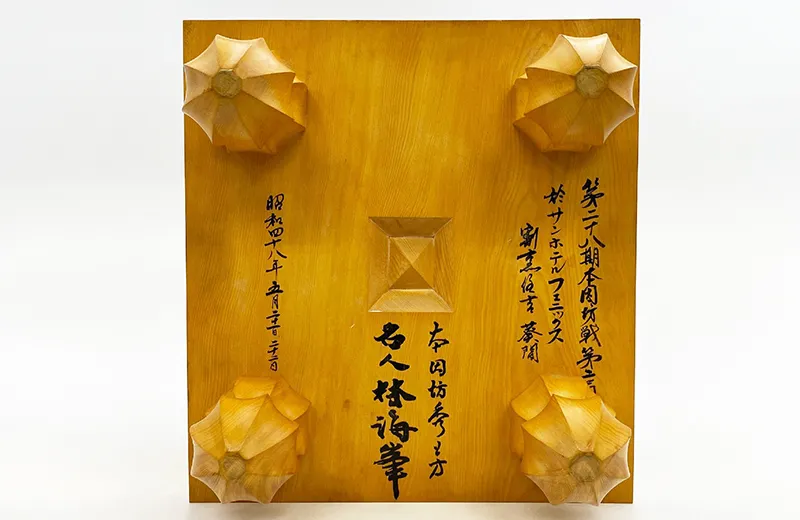 第二十八期本因坊戦第二
於サンホテルフェニックス
割烹住吉 葵間
本因坊秀芳
名人林海峯
昭和四十八年五月二十一日 二十二日